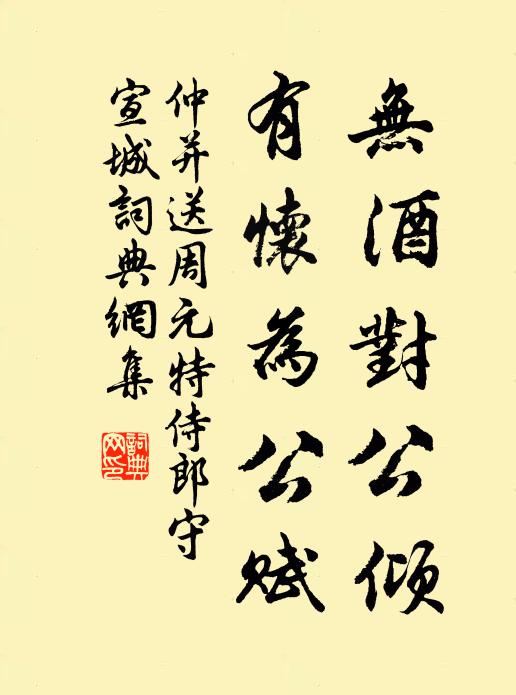 無酒對公傾
有懷為公賦
仲并送周元特侍郎守
宣城詞典網集
詞典网印